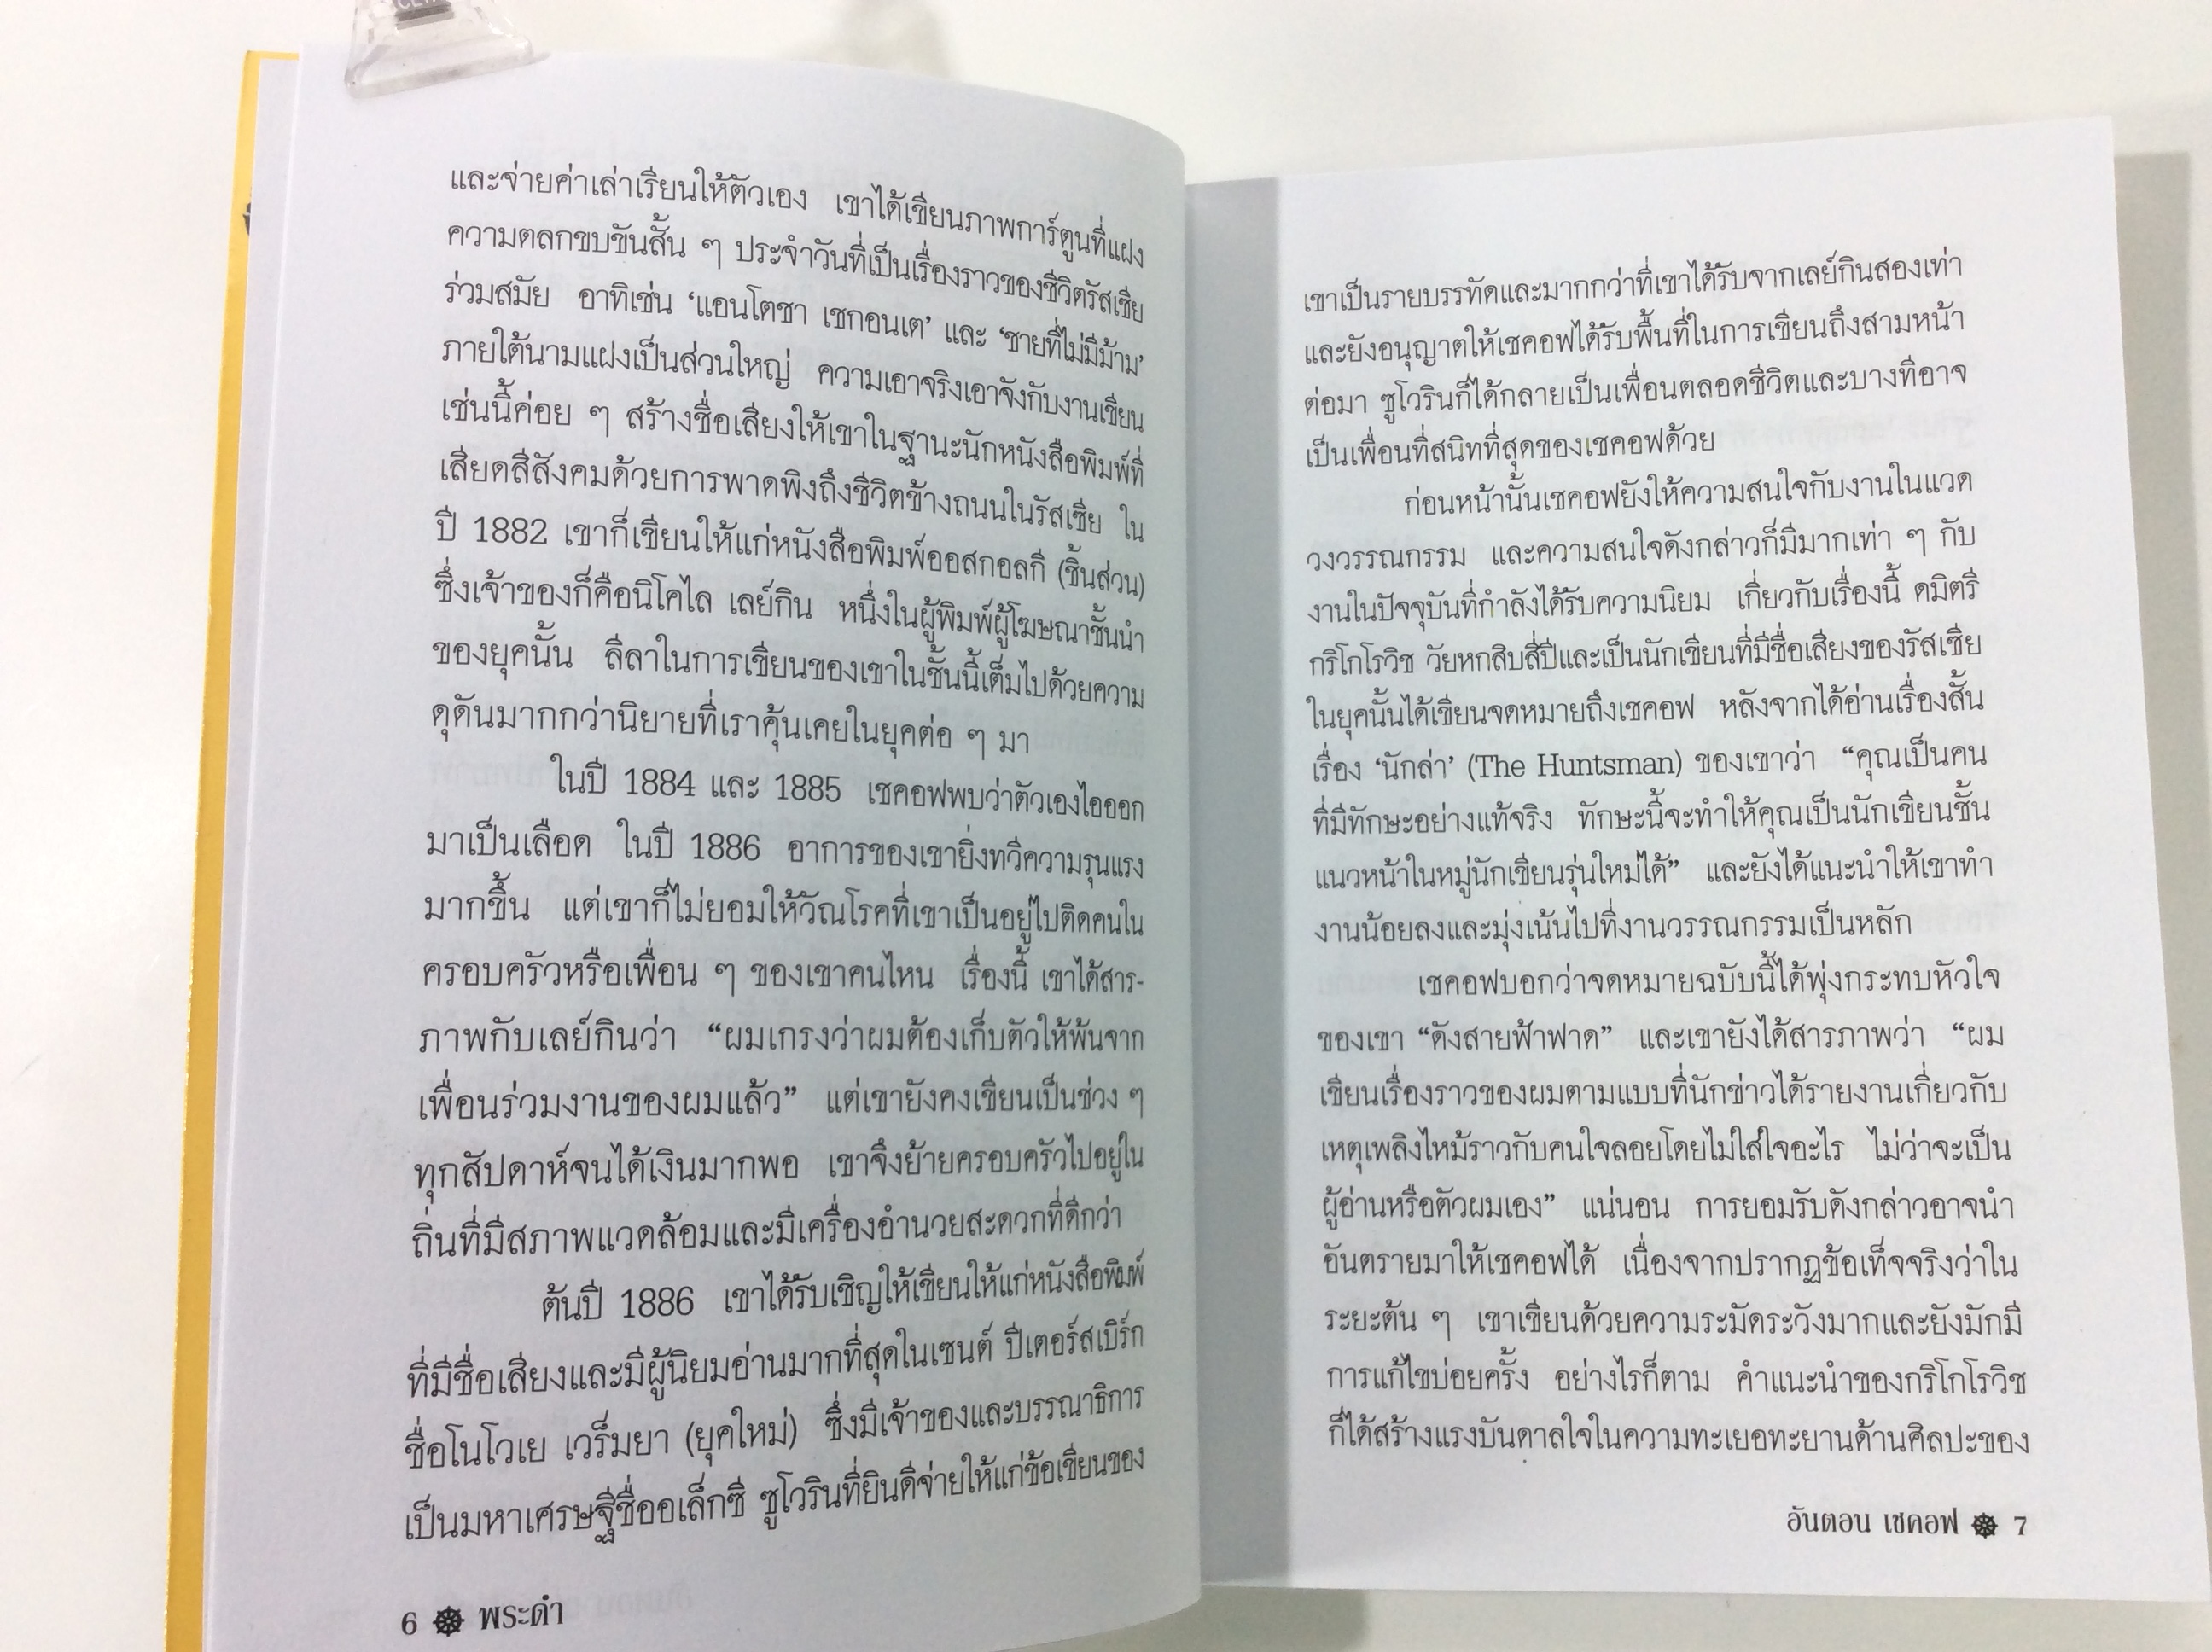 และจ่ายค่าเล่าเรียนให้ตัวเอง เขาได้เขียนภาพการ์ตูนที่แฝง
ความตลกขบขันสั้น ๆ ประจำวันที่เป็นเรื่องราวของชีวิตรัสเซีย
ร่วมสมัย อาทิเช่น ‘แอนโตชา เชกอนเต’ และ ‘ชายที่ไม่มีม้าม’
ภายใต้นามแฝงเป็นส่วนใหญ่ ความเอาจริงเอาจังกับงานเขียน
เช่นนี้ค่อย ๆ สร้างชื่อเสียงให้เขาในฐานะนักหนังสือพิมพ์ที่
เสียดสีสังคมด้วยการพาดพิงถึงชีวิตข้างถนนในรัสเซีย ใน
ปี 1882 เขาก็เขียนให้แก่หนังสือพิมพ์ออสกอลกี (ชิ้นส่วน)
ซึ่งเจ้าของก็คือนิโคไล เลย์กิน หนึ่งในผู้พิมพ์ผู้โฆษณาชั้นนำ
ของยุคนั้น ลีลาในการเขียนของเขาในชั้นนี้เต็มไปด้วยความ
ดุดันมากกว่านิยายที่เราคุ้นเคยในยุคต่อ ๆ มา
ในปี 1884 และ 1885 เชคอฟพบว่าตัวเองไอออก
มาเป็นเลือด ในปี 1886 อาการของเขายิ่งทวีความรุนแรง
มากขึ้น แต่เขาก็ไม่ยอมให้วัณโรคที่เขาเป็นอยู่ไปติดคนใน
ครอบครัวหรือเพื่อน ๆ ของเขาคนไหน เรื่องนี้ เขาได้สาร-
ภาพกับเลย์กินว่า “ผมเกรงว่าผมต้องเก็บตัวให้พ้นจาก
เพื่อนร่วมงานของผมแล้ว” แต่เขายังคงเขียนเป็นช่วง ๆ
ทุกสัปดาห์จนได้เงินมากพอ เขาจึงย้ายครอบครัวไปอยู่ใน
ถิ่นที่มีสภาพแวดล้อมและมีเครื่องอำนวยสะดวกที่ดีกว่า
ต้นปี 1886 เขาได้รับเชิญให้เขียนให้แก่หนังสือพิมพ์
ที่มีชื่อเสียงและมีผู้นิยมอ่านมากที่สุดในเซนต์ ปีเตอร์สเบิร์ก
ชื่อโนโวเย เวร็มยา (ยุคใหม่) ซึ่งมีเจ้าของและบรรณาธิการ
เป็นมหาเศรษฐีชื่ออเล็กซี ซูโวรินที่ยินดีจ่ายให้แก่ข้อเขียนของ
6 พระดำ
เขาเป็นรายบรรทัดและมากกว่าที่เขาได้รับจากเลย์กินสองเท่า
และยังอนุญาตให้เชคอฟได้รับพื้นที่ในการเขียนถึงสามหน้า
ต่อมา ซูโวรินก็ได้กลายเป็นเพื่อนตลอดชีวิตและบางทีอาจ
เป็นเพื่อนที่สนิทที่สุดของเชคอฟด้วย
ก่อนหน้านั้นเชคอฟยังให้ความสนใจกับงานในแวด
วงวรรณกรรม และความสนใจดังกล่าวก็มีมากเท่า ๆ กับ
งานในปัจจุบันที่กำลังได้รับความนิยม เกี่ยวกับเรื่องนี้ ดมิตรี
กริโกโรวิช วัยหกสิบสี่ปีและเป็นนักเขียนที่มีชื่อเสียงของรัสเซีย
ในยุคนั้นได้เขียนจดหมายถึงเชคอฟ หลังจากได้อ่านเรื่องสั้น
เรื่อง ‘นักล่า’ (The Huntsman) ของเขาว่า “คุณเป็นคน
ที่มีทักษะอย่างแท้จริง ทักษะนี้จะทำให้คุณเป็นนักเขียนชั้น
แนวหน้าในหมู่นักเขียนรุ่นใหม่ได้” และยังได้แนะนำให้เขาทำ
งานน้อยลงและมุ่งเน้นไปที่งานวรรณกรรมเป็นหลัก
เชคอฟบอกว่าจดหมายฉบับนี้ได้พุ่งกระทบหัวใจ
ของเขา “ดังสายฟ้าฟาด” และเขายังได้สารภาพว่า “ผม
เขียนเรื่องราวของผมตามแบบที่นักข่าวได้รายงานเกี่ยวกับ
เหตุเพลิงไหม้ราวกับคนใจลอยโดยไม่ใส่ใจอะไร ไม่ว่าจะเป็น
ผู้อ่านหรือตัวผมเอง” แน่นอน การยอมรับดังกล่าวอาจนำ
อันตรายมาให้เชคอฟได้ เนื่องจากปรากฏข้อเท็จจริงว่าใน
ระยะต้น ๆ เขาเขียนด้วยความระมัดระวังมากและยังมักมี
การแก้ไขบ่อยครั้ง อย่างไรก็ตาม คำแนะนำของกริโกโรวิช
ก็ได้สร้างแรงบันดาลใจในความทะเยอทะยานด้านศิลปะของ
อันตอน เชคอฟ 7